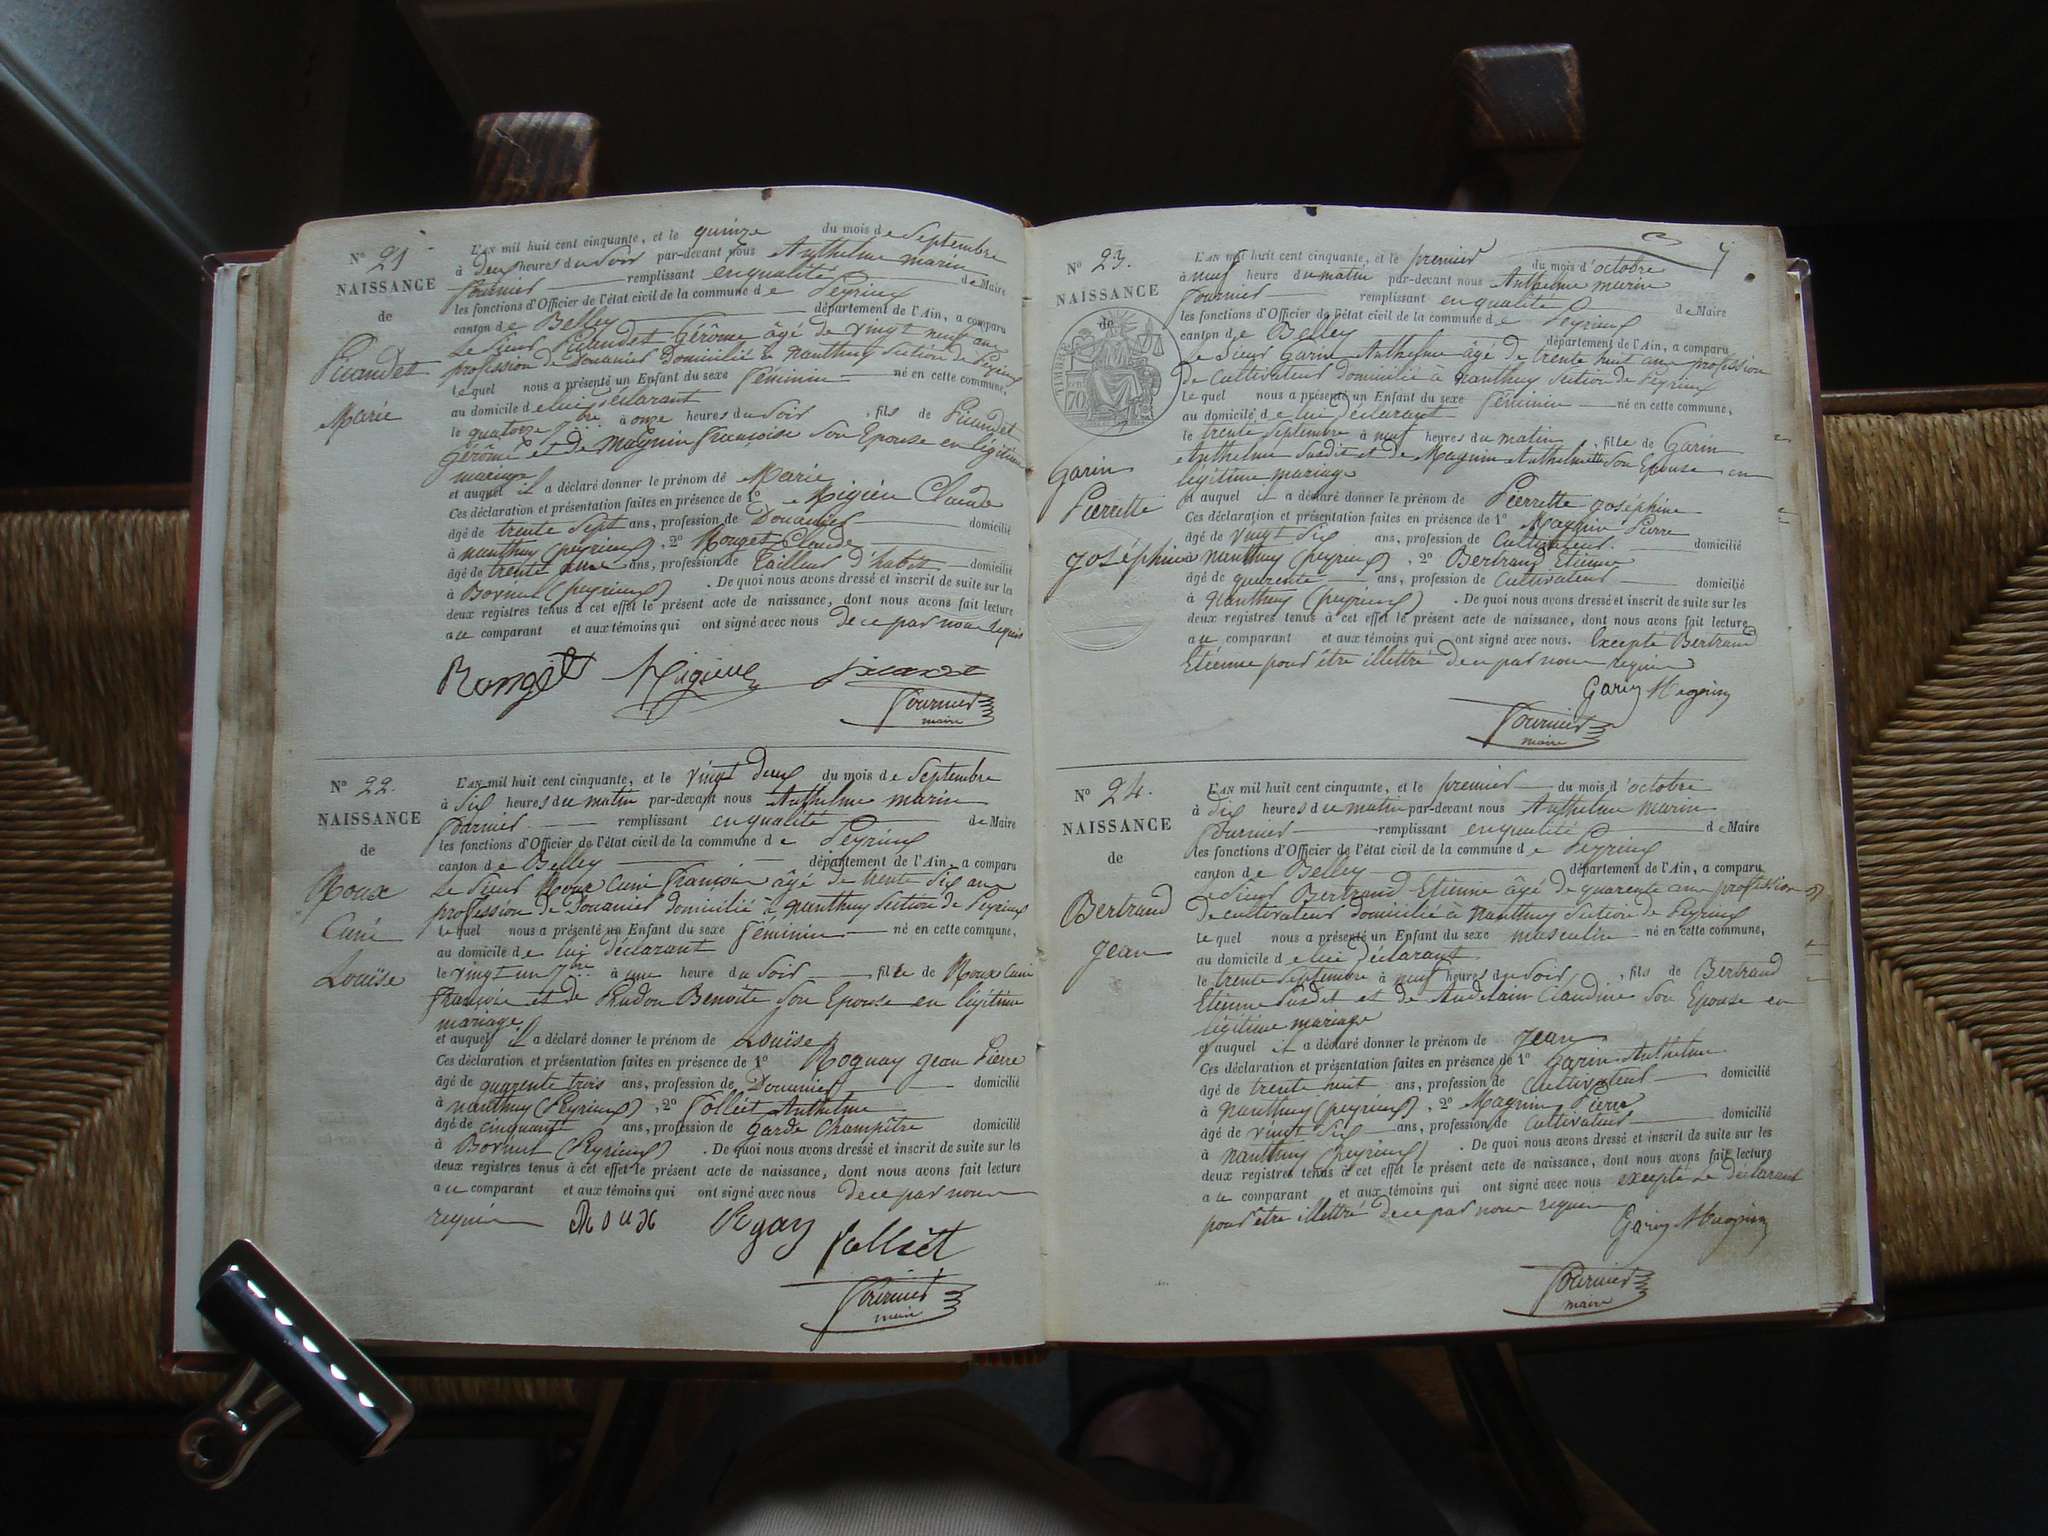 N° 21
NAISSANCE
de
Picandet
Marie
L'AN mil huit cent cinquante, et le quinze du mois de Septembre
à deux heures du Soir par-devant nous Anthelme marin
Fournier remplissant en qualité de Maire
les fonctions d'Officier de l'état civil de la commune de Peyrieux
canton de Belley département de l'Ain, a comparu
Le Sieur Picandet Gérôme âgé de vingt neuf ans
profession de Douanier Domicilié à nanthuy Section de Peyrieux
Le quel nous a présenté un Enfant du sexe féminin né en cette commune,
au domicile de lui déclarant
le quatorze 7bre à onze heures du Soir, fils de Picandet
Gérôme et de Magnin françoise Son Epouse en légitime
mariage
et auquel il a déclaré donner le prénom de Marie
Ces déclaration et présentation faites en présence de 1° Migieu Claude
âgé de trente Sept ans, profession de Douanier domicilié
à nanthuy (peyrieux), 2° Rouget Claude
âgé de trente ans, profession de Tailleur d'habits domicilié
à (peyrieux). De quoi nous avons dressé et inscrit de suite sur les
deux registres tenus à cet effet le présent acte de naissance, dont nous avons fait lecture
au comparant et aux témoins qui ont signé avec nous de ce par nous requis
Picandet
Fournier
maire
N° 22.
NAISSANCE
de
Roux
Cuni
Louise
L'AN mil huit cent cinquante, et le vingt deux du mois de Septembre
à Six heures du matin par-devant nous Anthelme marin
Fournier remplissant en qualité de Maire
les fonctions d'Officier de l'état civil de la commune de Peyrieux
canton de Belley département de l'Ain, a comparu
Le Sieur Roux Cuni françois âgé de trente Six ans
profession de Douanier domicilié à nanthuy Section de Peyrieux
Le quel nous a présenté un Enfant du sexe féminin né en cette commune,
au domicile de lui déclarant
le vingt un 7bre à une heure du Soir fille de Roux Cuni
françois et de Benoite Son Epouse en légitime
mariage
et auquel il a déclaré donner le prénom de Louïse
Ces déclaration et présentation faites en présence de 1° Jean Pierre
âgé de quarente trois ans, profession de Douanier domicilié
à nanthuy (Peyrieux), 2° Folliet Anthelme
âgé de cinquante ans, profession de garde champêtre domicilié
à (Peyrieux). De quoi nous avons dressé et inscrit de suite sur les
deux registres tenus à cet effet le présent acte de naissance, dont nous avons fait lecture
au comparant et aux témoins qui ont signé avec nous de ce par nous
requis Roux folliet
Fournier
maire
7
N° 23.
NAISSANCE
de
TIMBRE
70
Garin
Pierrette
joséphine
L'AN mil huit cent cinquante, et le premier du mois d'octobre
à neuf heure du matin par-devant nous Anthelme marin
Fournier remplissant en qualité de Maire
les fonctions d'Officier de l'état civil de la commune de Peyrieux
canton de Belley département de l'Ain, a comparu
Le Sieur Garin Anthelme âgé de trente huit ans profession
de cultivateur domicilié à nanthuy Section de Peyrieux
Le quel nous a présenté un Enfant du sexe féminin né en cette commune,
au domicile de lui déclarant
le trente Septembre à neuf heures du matin, fille de Garin
Anthelme Susdit et de Magnin Anthelmette Son Epouse en
légitime mariage
et auquel il a déclaré donner le prénom de Pierrette joséphine
Ces déclaration et présentation faites en présence de 1° Magnin Pierre
âgé de vingt Six ans, profession de Cultivateur domicilié
à nanthuy (peyrieux), 2° Bertrand Etienne
âgé de quarente ans, profession de Cultivateur domicilié
à nanthuy (peyrieux). De quoi nous avons dressé et inscrit de suite sur les
deux registres tenus à cet effet le présent acte de naissance, dont nous avons fait lecture
au comparant et aux témoins qui ont signé avec nous. Excepté Bertrand
Etienne pour être illettré de ce par nous requis
Garin Magnin
Fournier
maire
N° 24.
NAISSANCE
de
Bertrand
jean
L'AN mil huit cent cinquante, et le premier du mois d'octobre
à dix heures du matin par-devant nous Anthelme marin
Fournier remplissant en qualité de Maire
les fonctions d'Officier de l'état civil de la commune de Peyrieux
canton de Belley département de l'Ain, a comparu
Le Sieur Bertrand Etienne âgé de quarente ans profession
de cultivateur domicilié à nanthuy Section de Peyrieux
Le quel nous a présenté un Enfant du sexe masculin né en cette commune,
au domicile de lui déclarant
le trente Septembre à neuf heures du Soir, fils de Bertrand
Etienne Susdit et de Claudine Son Epouse en
légitime mariage
et auquel il a déclaré donner le prénom de Jean
Ces déclaration et présentation faites en présence de 1° Garin Anthelme
âgé de trente huit ans, profession de Cultivateur domicilié
à nanthuy (peyrieux), 2° Magnin Pierre
âgé de vingt Six ans, profession de Cultivateur domicilié
à nanthuy (peyrieux). De quoi nous avons dressé et inscrit de suite sur les
deux registres tenus à cet effet le présent acte de naissance, dont nous avons fait lecture
au comparant et aux témoins qui ont signé avec nous excepté Le déclarant
pour être illettré de ce par nous requis
Garin Magnin
Fournier
maire